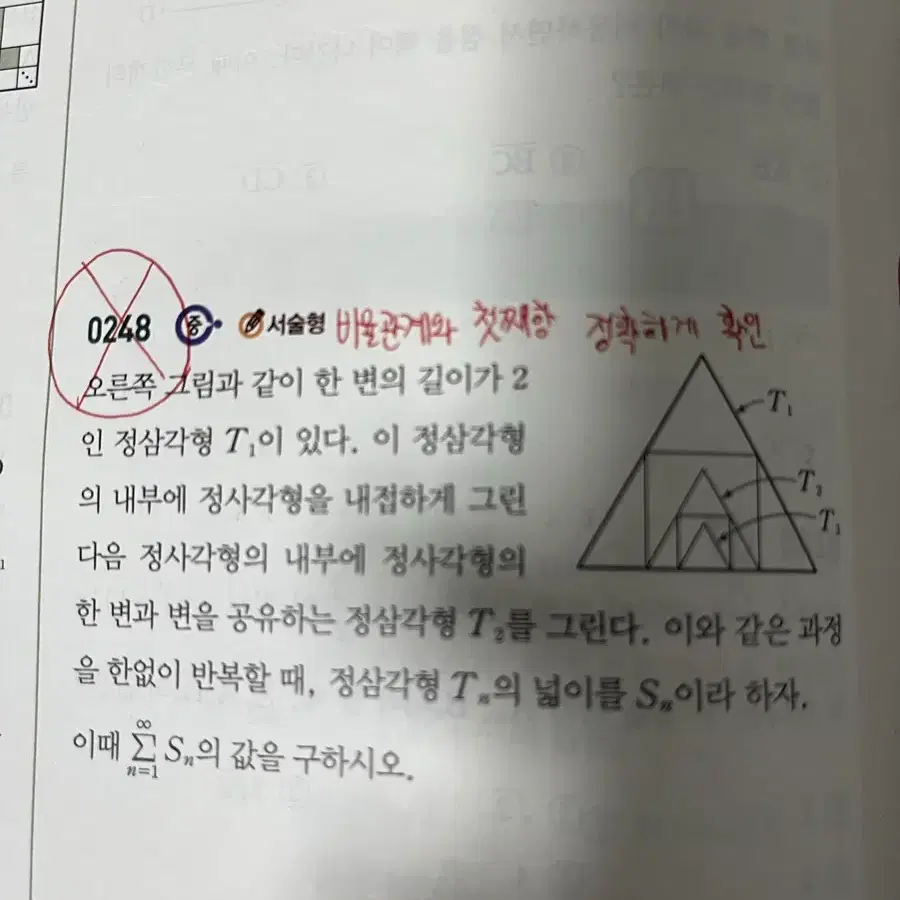 0248 중 서술형 비율관계와 첫째항 정확하게 확인
오른쪽 그림과 같이 한 변의 길이가 2
인 정삼각형 T₁이 있다. 이 정삼각형
의 내부에 정사각형을 내접하게 그린
다음 정사각형의 내부에 정사각형의
한 변과 변을 공유하는 정삼각형 T₂를 그린다. 이와 같은 과정
을 한없이 반복할 때, 정삼각형 Tₙ의 넓이를 Sₙ이라 하자.
이때 ∞ Σ n=1 Sₙ의 값을 구하시오.
T₁
T₂
T₃